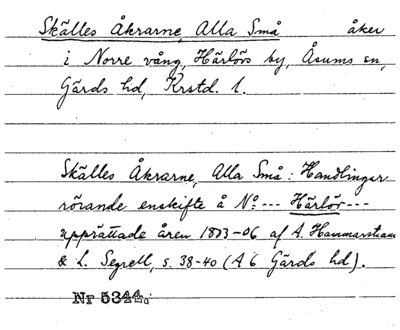 Skälles Åkrarne, Alla Små åker
i Norre vång, Härlövs by, Åsums sn,
Gärds hd, Krstd. l.
Skälles Åkrarne, Alla Små : Handlingar
rörande enskifte å No --- Härlöv ---
upprättade åren 1803-06 af A. Hammarstrand
& L. Segrell, s. 38-40 (A 6 Gärds hd).
Nr 5344a